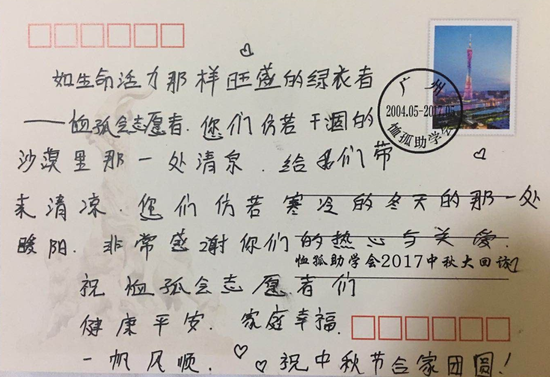 如生命活力那样旺盛的绿衣者
——恤孤会志愿者.您们仿若干涸的
沙漠里那一处清泉.给我们带
来清凉.您们仿若寒冷的冬天的那一处
暖阳.非常感谢你们的热心与关爱.
祝恤孤会志愿者们
健康平安.家庭幸福.
一帆风顺.祝中秋节合家团圆!
广州
2004.05-2017.05
恤孤助学会
恤孤助学会2017中秋大回访